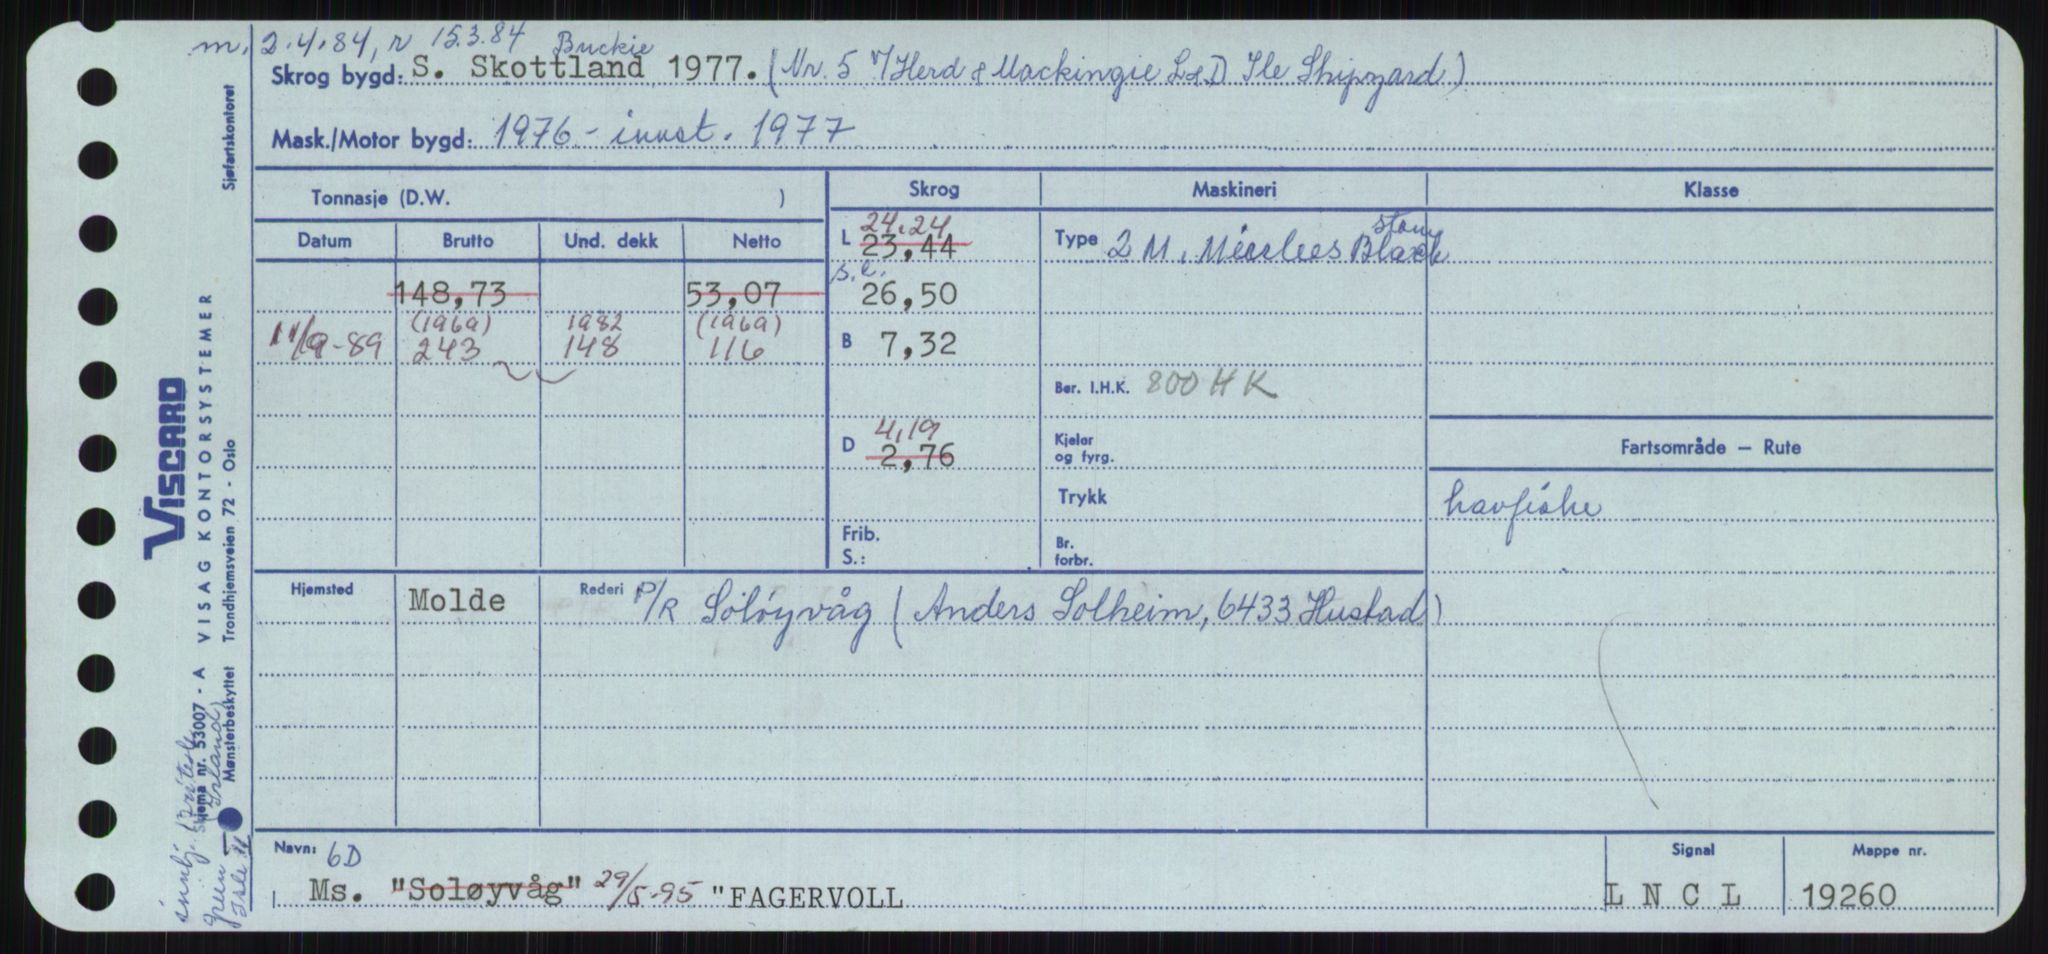 m. 2.4.84, r 15.3.84 Buckie
Skrog bygd: S. Skottland 1977. (Nr. 5 v/Herd & Mackingie L&D Ile Shipyard)
Mask./Motor bygd: 1976 - innst. 1977
Tonnasje (D.W. ) Skrog Maskineri Klasse
Datum Brutto Und. dekk Netto L 24.24 23,44 Type 2 M. Mirrlees Black stone
148,73 53,07 s.l. 26,50
11/9-89 (1969) 243 1982 148 (1969) 116 B 7,32
Ber. I.H.K. 800 HK
D 4,19 2,76 Kjeler og fyrg. Fartsområde — Rute
Trykk havfiske
Frib. S.: Br. forbr.
Hjemsted Molde Rederi P/R Soløyvåg (Anders Solheim, 6433 Hustad)
Navn: 6D Signal Mappe nr.
Ms. "Soløyvåg" 29/5-95 "FAGERVOLL L N C L 19260
VISCARD
Skjema nr. 53007 - A VISAG KONTORSYSTEMER
Mønsterbeskyttet Trondhjemsveien 72 - Oslo Sjøfartskontoret
innkj. British
green (Irland)
Isle